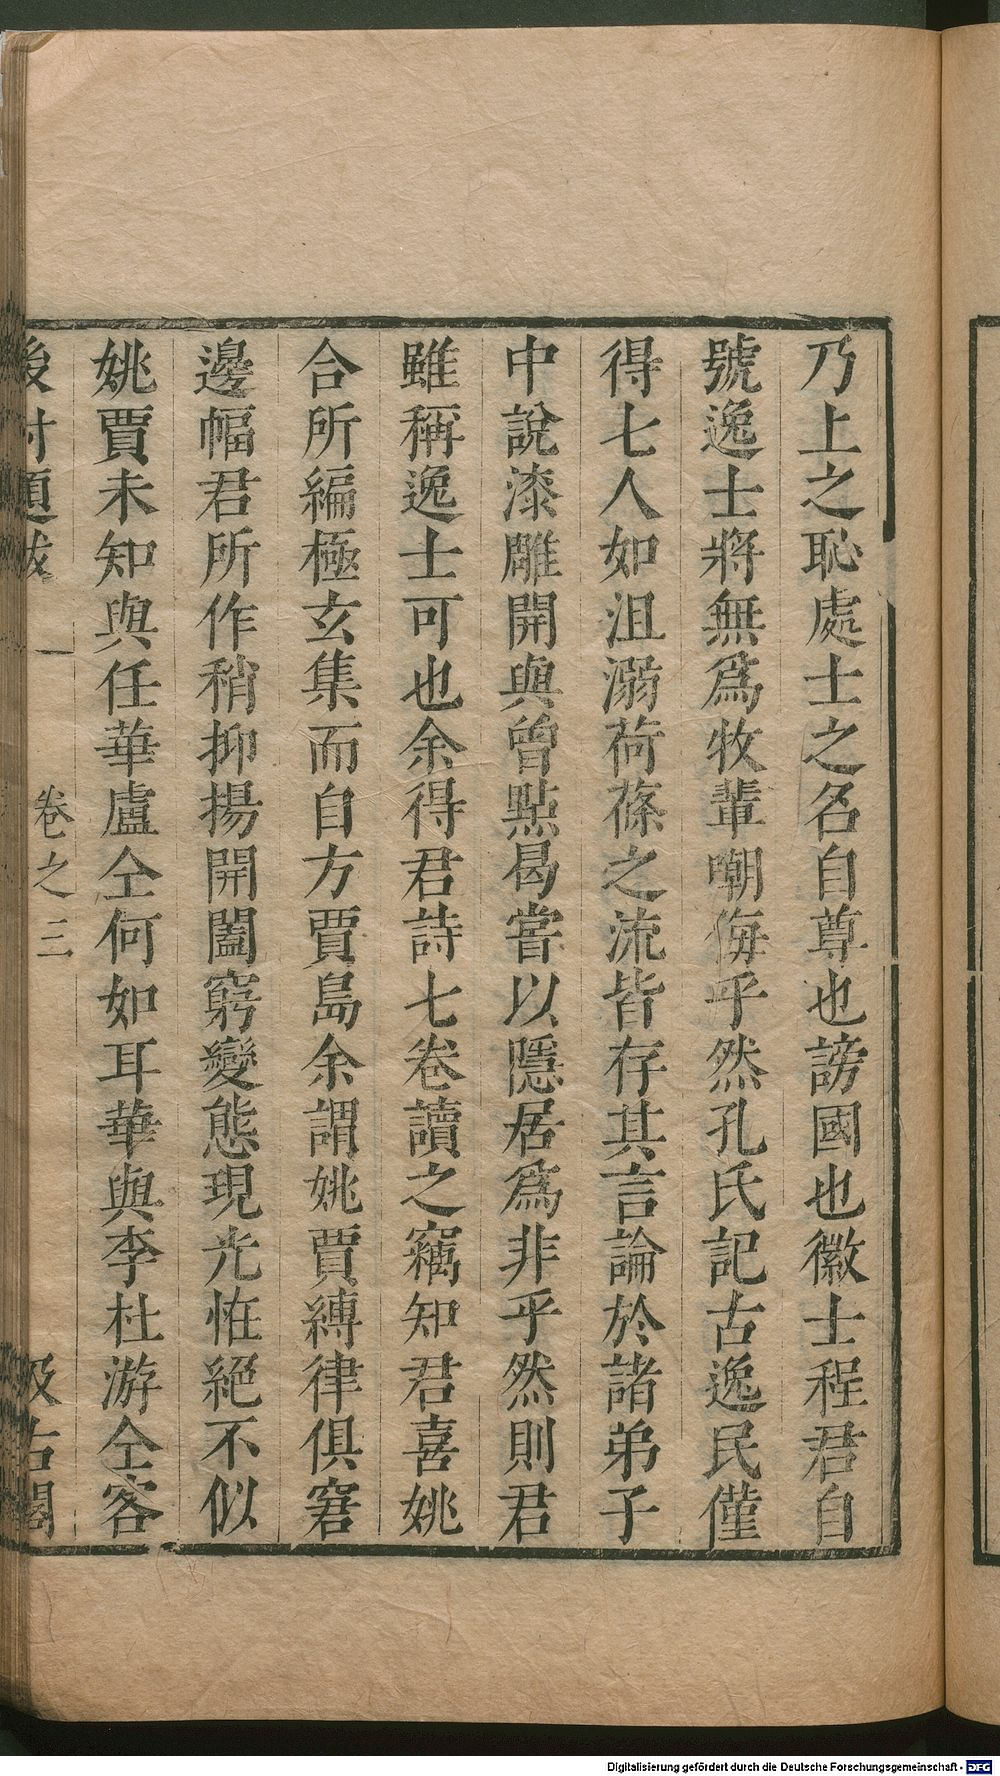 乃上之恥處士之名自尊也謗國也徽士程君自
號逸士將無爲牧輩嘲侮乎然孔氏記古逸民僅
得七人如沮溺荷蓧之流皆存其言論於諸弟子
中說漆雕開與曾點曷嘗以隱居爲非乎然則君
雖稱逸士可也余得君詩七卷讀之竊知君喜姚
合所編極玄集而自方賈島余謂姚賈縛律俱窘
邊幅君所作稍抑揚開闔窮變態現光恠絕不似
姚賈未知與任華盧仝何如耳華與李杜游仝客
後村題跋 一 卷之三 汲古閣
Digitalisierung gefördert durch die Deutsche Forschungsgemeinschaft - DFG